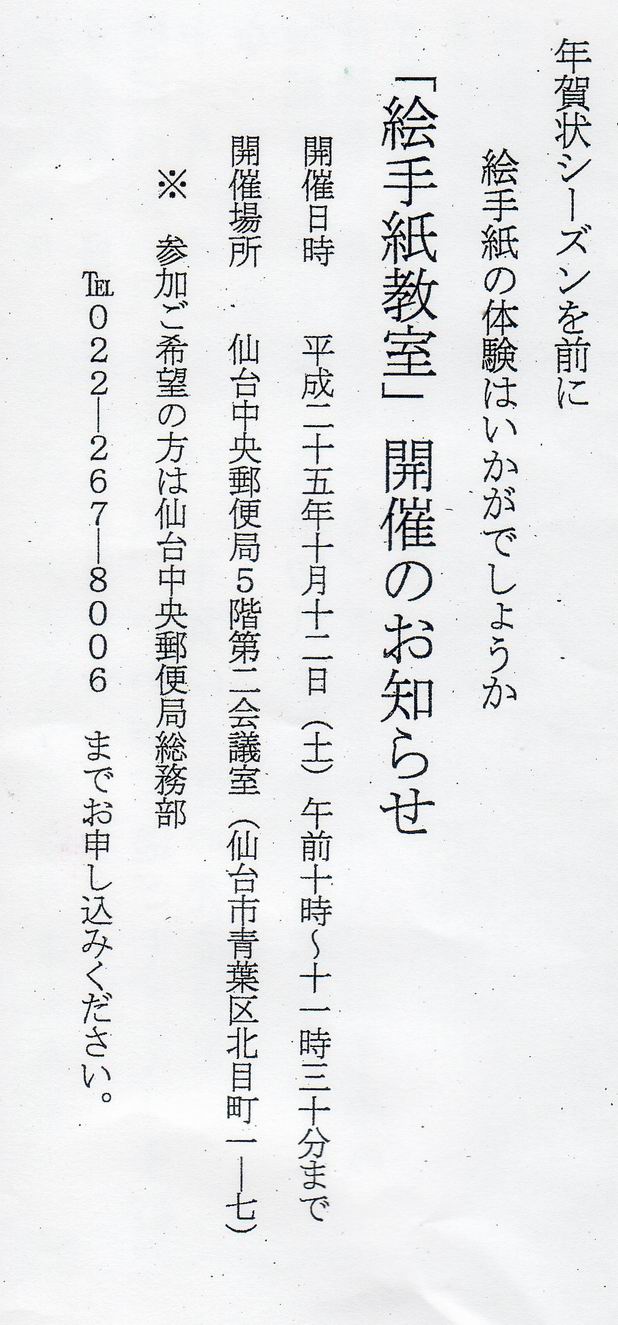 年賀状シーズンを前に
絵手紙の体験はいかがでしょうか
「絵手紙教室」開催のお知らせ
開催日時　平成二十五年十月十二日（土）午前十時～十一時三十分まで
開催場所　仙台中央郵便局５階第二会議室（仙台市青葉区北目町一―七）
※　参加ご希望の方は仙台中央郵便局総務部
℡０２２―２６７―８００６　までお申し込みください。